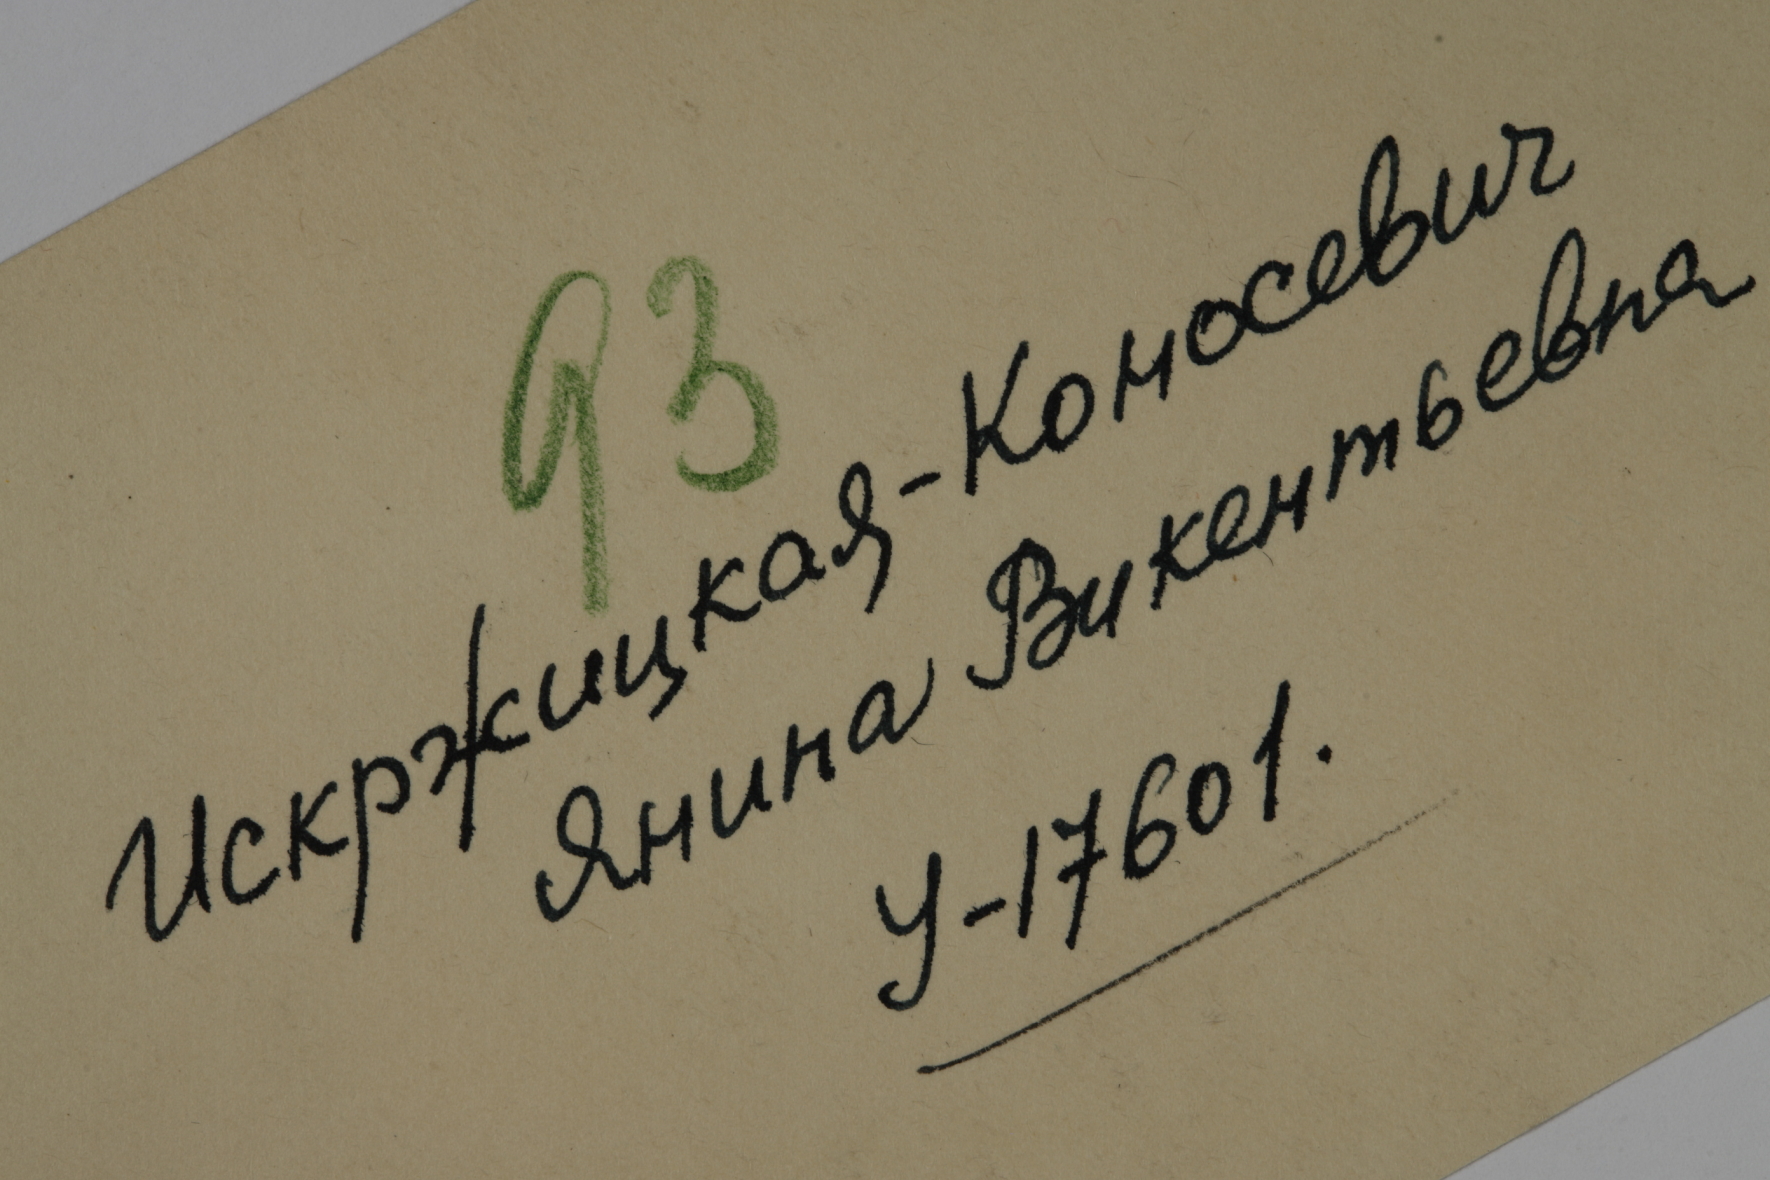 93
Искржицкая-Коносевич
Янина Викентьевна
У-17601.